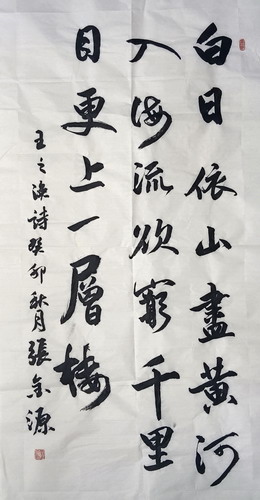 白日依山盡黄河
入海流欲窮千里
目更上一層楼
王之渙詩癸卯秋月張金源